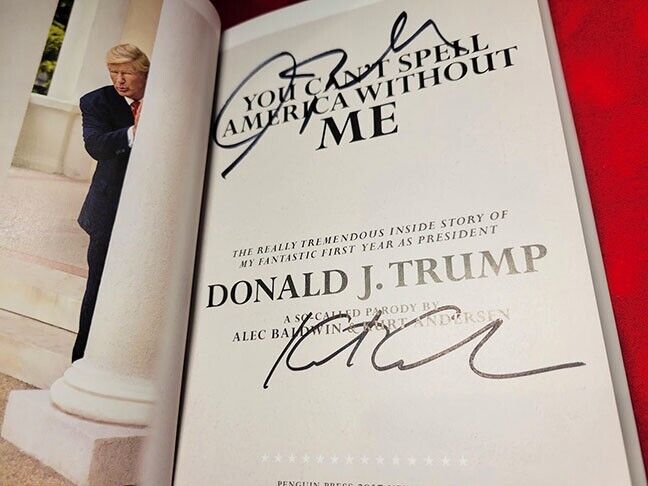 YOU CAN'T SPELL
AMERICA WITHOUT
ME
THE REALLY TREMENDOUS INSIDE STORY OF
MY FANTASTIC FIRST YEAR AS PRESIDENT
DONALD J. TRUMP
A SO-CALLED PARODY BY
ALEC BALDWIN & KURT ANDERSEN
PENGUIN PRESS 2017